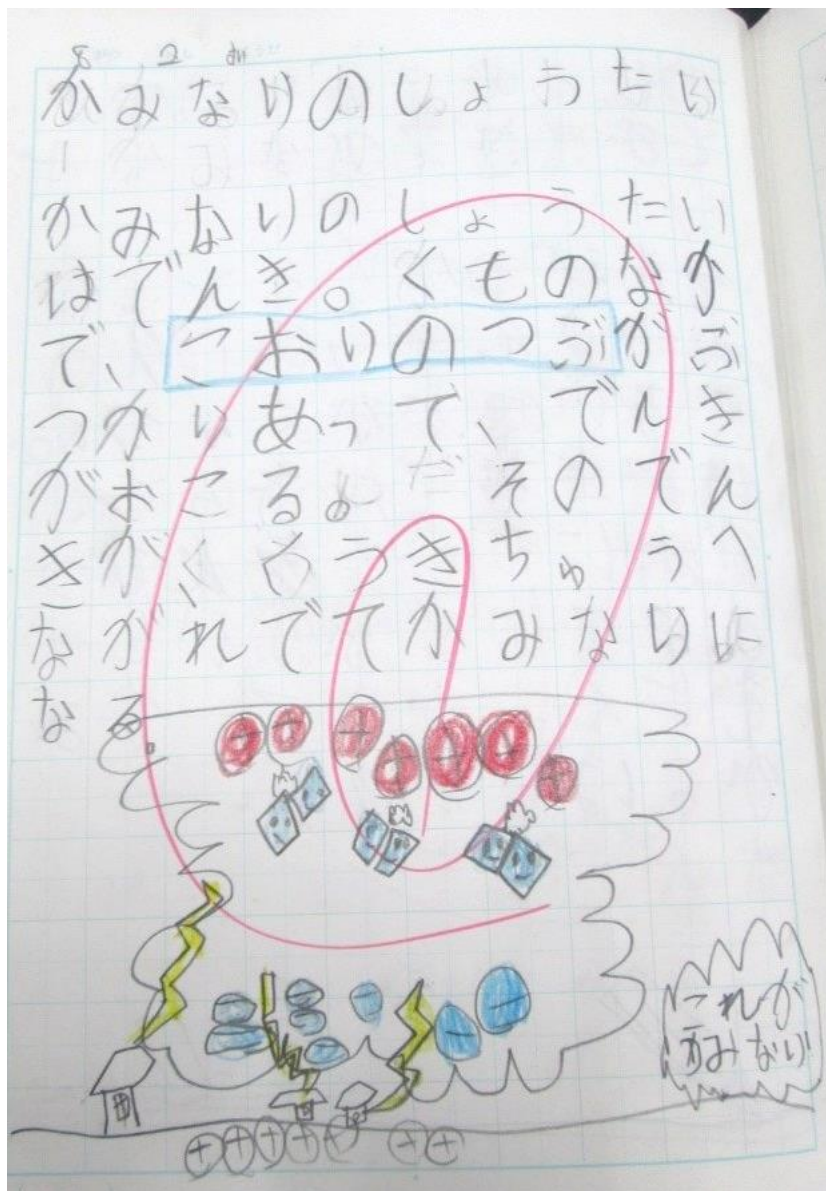 かみなりのしょうたい
かみなりのしょうたい
はでんき。くものなか
で、こおりのつぶがぶ
つかりあって、でんき
がおこるよ。そのでん
きが、くうきちゅうへ
ながれでてかみなりに
なる。
これが
かみなり!